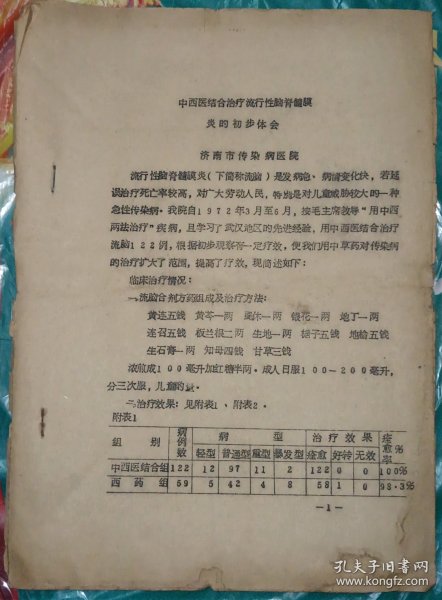 中西医结合治疗流行性脑脊髓膜
炎的初步体会
济南市传染病医院
流行性脑脊髓膜炎(下简称流脑)是发病急、病情变化快,若延
误治疗死亡率较高,对广大劳动人民,特别是对儿童威胁较大的一种
急性传染病。我院自1972年3月至6月,按毛主席教导“用中西
两法治疗”疾病,且学习了武汉地区的先进经验,用中西医结合治疗
流脑122例,根据初步观察有一定疗效,使我们用中草药对传染病
的治疗扩大了范围,提高了疗效,现简述如下:
临床治疗情况:
一、流脑合剂方药组成及治疗方法:
黄连五钱 黄芩一两 蚤休一两 银花一两 地丁一两
连召五钱 板兰根二两 生地一两 栀子五钱 地榆五钱
生石膏一两 知母四钱 甘草三钱
浓煎成100毫升加红糖半两。成人日服100-200毫升,
分三次服,儿童酌量。
二、治疗效果:见附表1、附表2。
附表1
组别 病例数 病型 治疗效果 痊愈率%
轻型 普通型 重型 暴发型 痊愈 好转 无效
中西医结合组 122 12 97 11 2 122 0 0 100%
西药组 59 5 42 4 8 58 1 0 98.3%
-1-
孔夫子旧书网